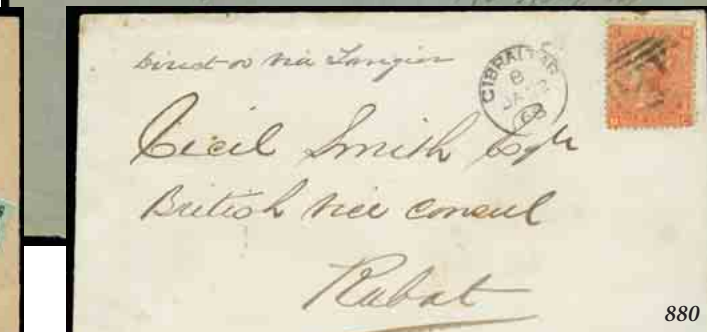 Direct or via Tangier
GIBRALTAR
B
JA
68
Cecil Smith Esqre
British Vice Consul
Rabat
880